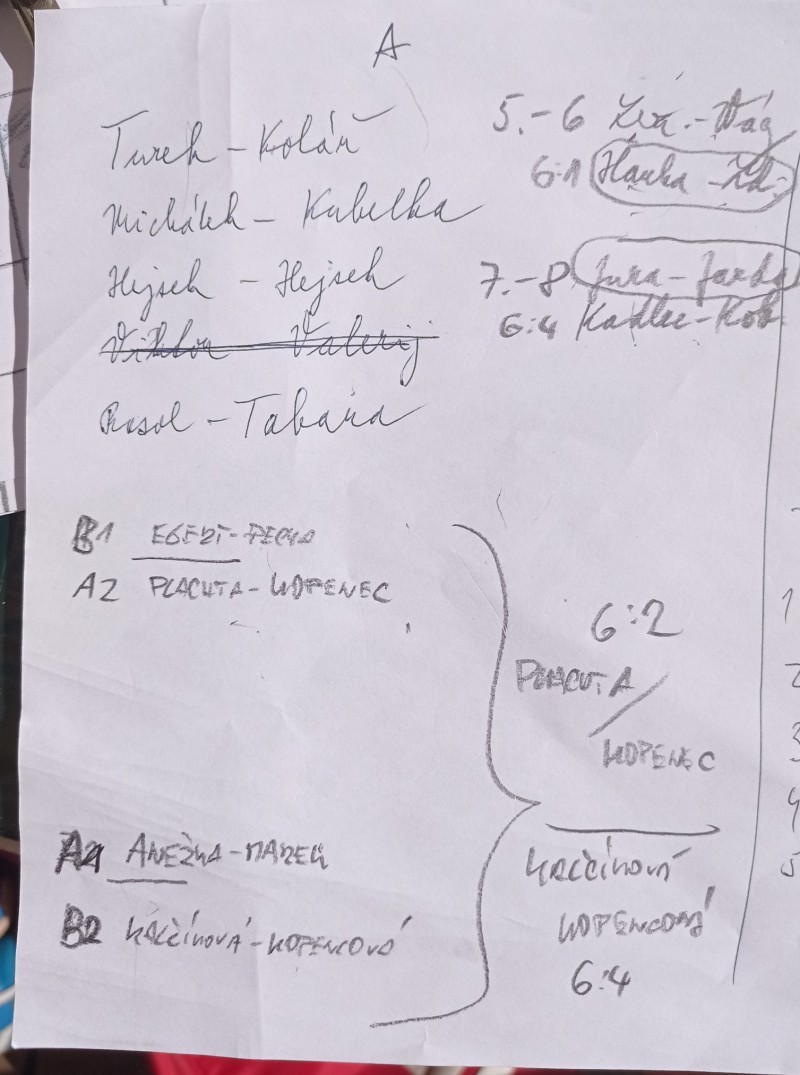 A
Turek - Kolář
Michálek - Kubelka
Hejsek - Hejsek
Viktor Valerij
Rosol - Tabara
5.-6
6:1 Hanka - Zd.
7.-8 Jura - Jarda
6:4 Kadlec - Kob
B1
A2 PLACUTA - KOPENEC
6:2
PLACUTA
/
KOPENEC
A1 ANEŽKA - MAREK
B2 KALČÍNOVÁ - KOPENCOVÁ
KALČÍNOVÁ
KOPENCOVÁ
6:4
1
2
3
4
5